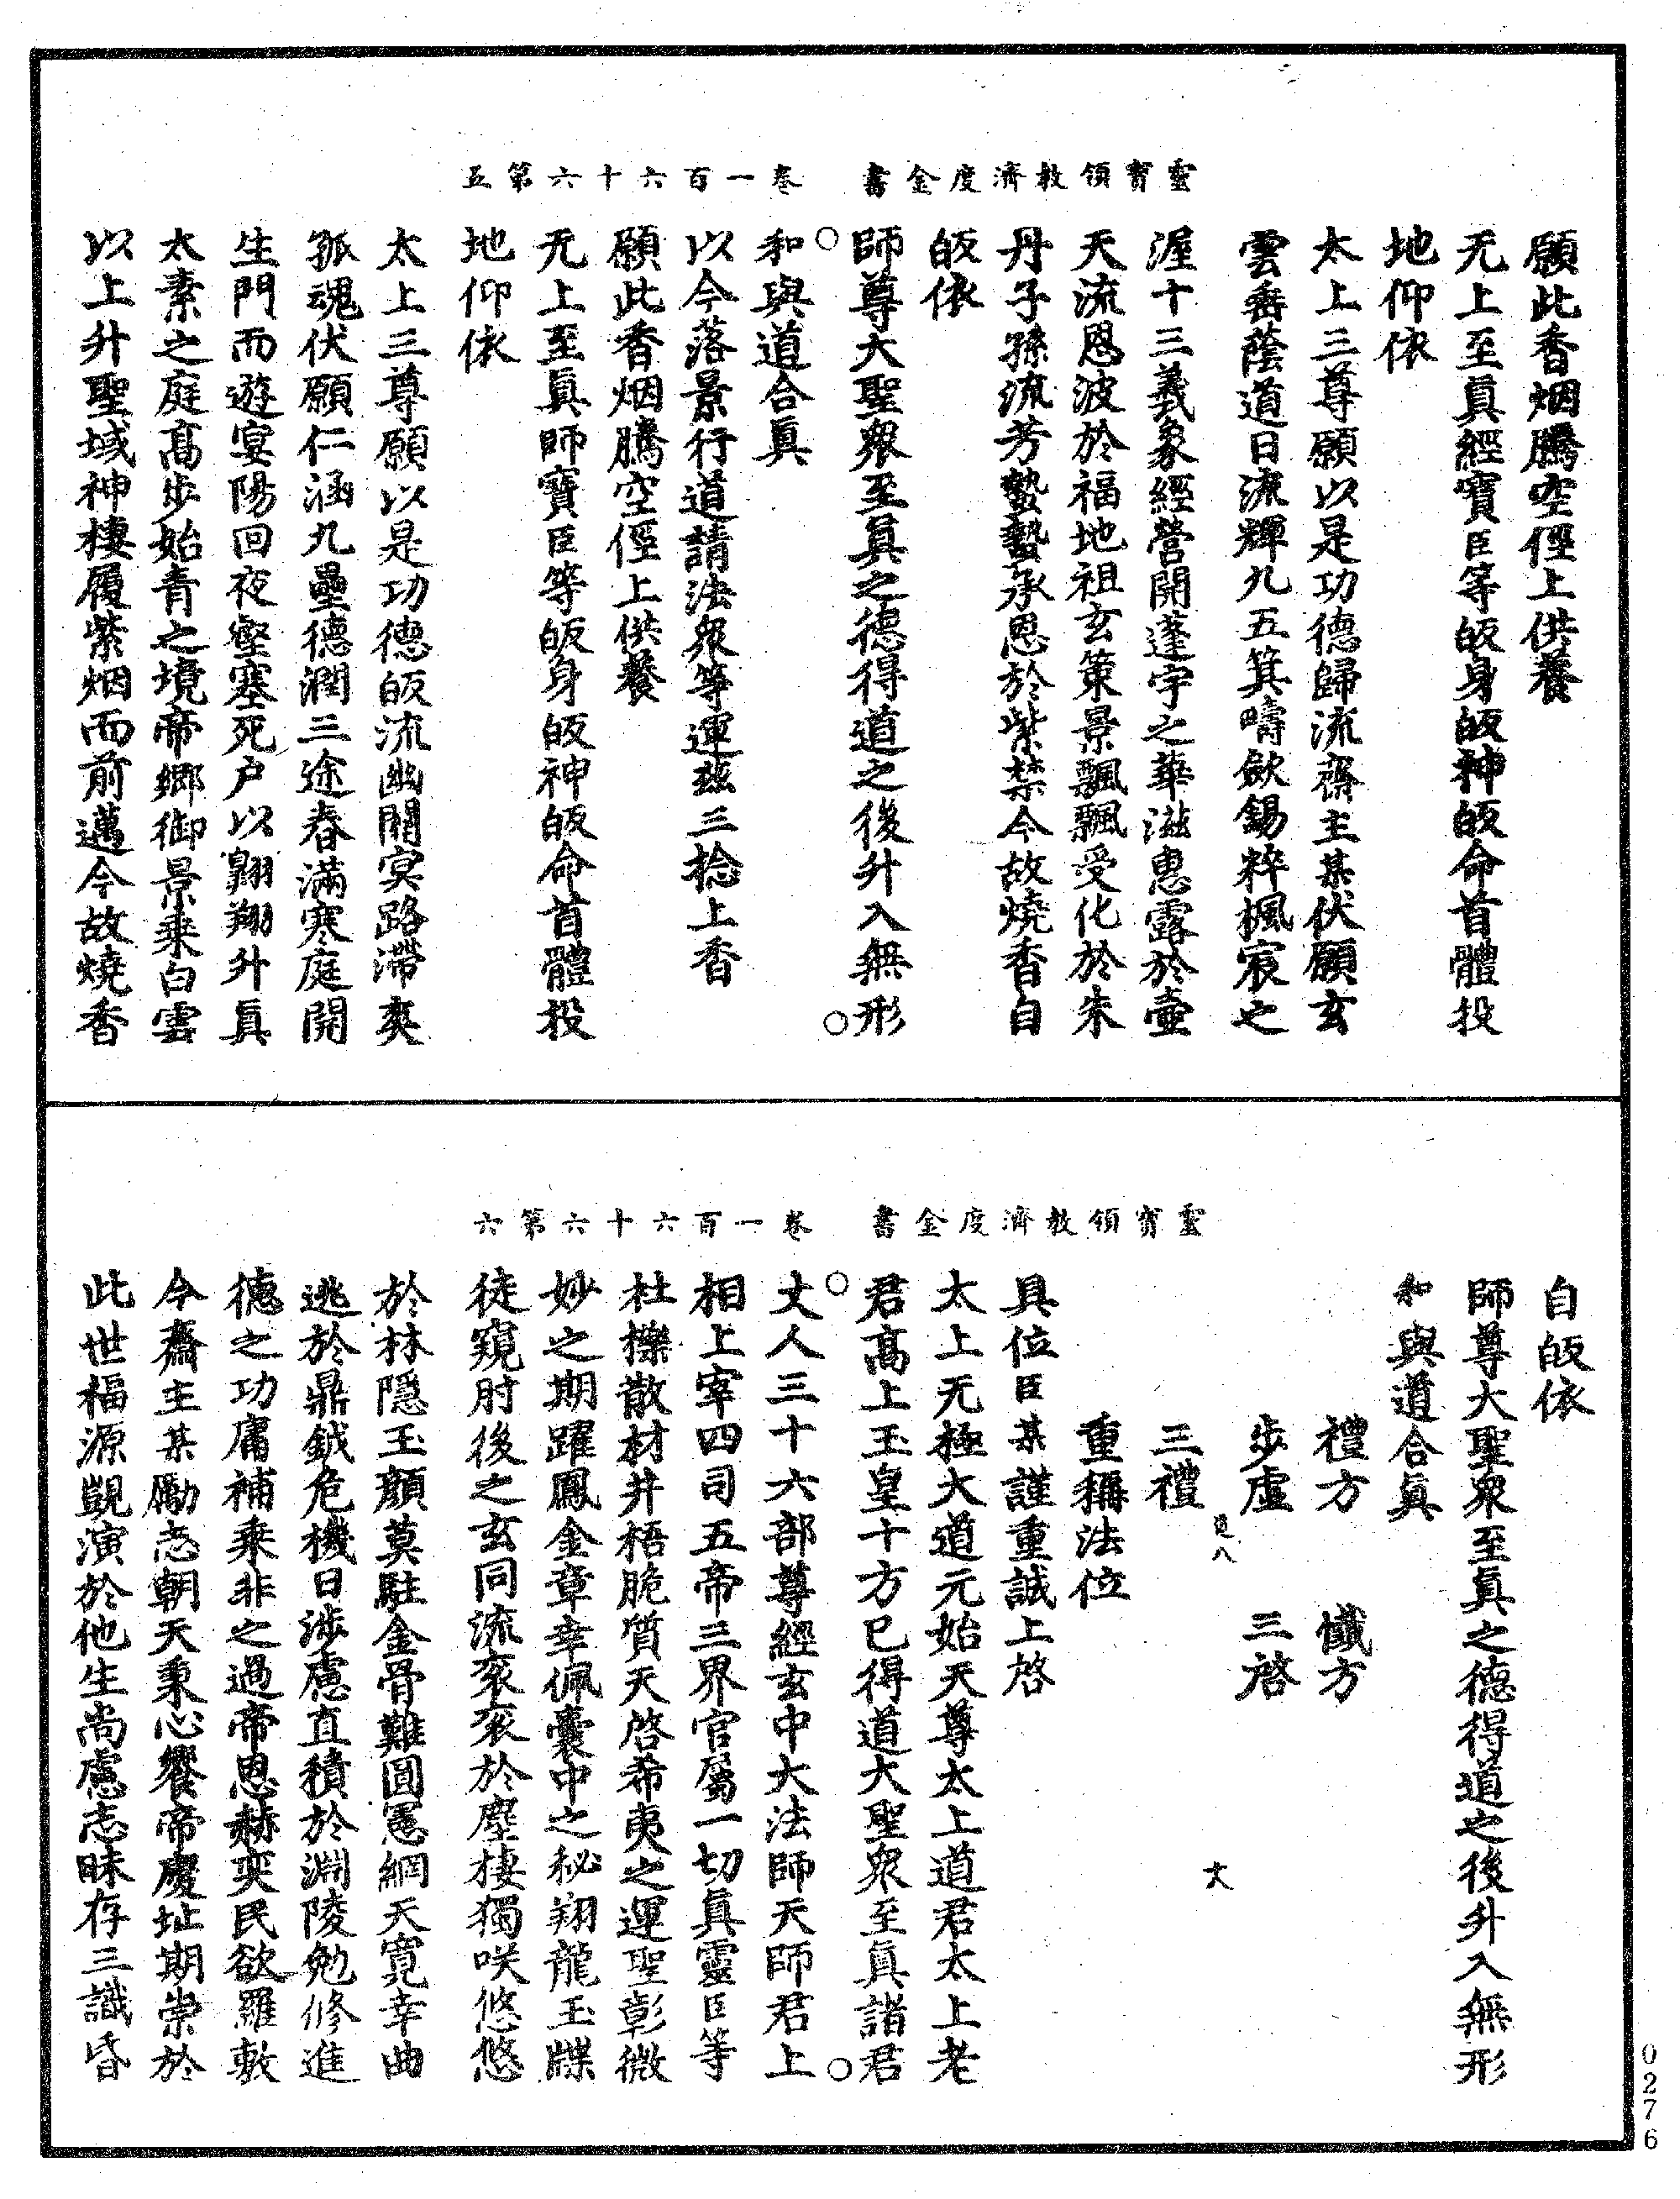 靈寶領教濟度金書　卷一百六十六第五
願此香烟騰空徑上供養
无上至眞經寶臣等皈身皈神皈命首體投
地仰依
太上三尊願以是功德歸流齋主某伏願玄
雲垂蔭道日流輝九五箕疇歛錫粹楓宸之
渥十三義象經營開蓬宇之華滋惠露於壷
天流恩波於福地祖玄策景飄飄受化於朱
丹子孫流芳蟄蟄承恩於紫禁今故燒香自
皈依
師尊大聖衆至眞之德得道之後升入無形
和與道合眞
以今落景行道請法衆等運茲三捻上香
願此香烟騰空徑上供養
无上至眞師寶臣等皈身皈神皈命首體投
地仰依
太上三尊願以是功德皈流幽關冥路滯爽
孤魂伏願仁涵九壘德潤三途春滿寒庭開
生門而遊宴陽回夜壑塞死户以翺翔升眞
太素之庭髙步始青之境帝鄉御景乘白雲
以上升聖域神棲履紫烟而前邁今故燒香
靈寶領教濟度金書　卷一百六十六第六
自皈依
師尊大聖衆至眞之德得道之後升入無形
和與道合眞
禮方　懺方
步虛　三啓
三禮
重稱法位
具位臣某謹重誠上啓
太上无極大道元始天尊太上道君太上老
君髙上玉皇十方已得道大聖衆至眞諸君
丈人三十六部尊經玄中大法師天師君上
相上宰四司五帝三界官屬一切眞靈臣等
杜櫟散材井梧脆質天啓希夷之運聖彰微
妙之期躍鳳金章幸佩囊中之秘翔龍玉牒
徒窺肘後之玄同流衮衮於塵棲獨咲悠悠
於林隱玉顔莫駐金骨難圓憲網天寛幸曲
逃於鼎鉞危機日涉慮直積於淵陵勉修進
德之功庸補乘非之過帝恩赫奕民欲羅敷
今齋主某勵志朝天秉心饗帝慶址期崇於
此世福源覬演於他生尚慮志昧存三識昏
0276